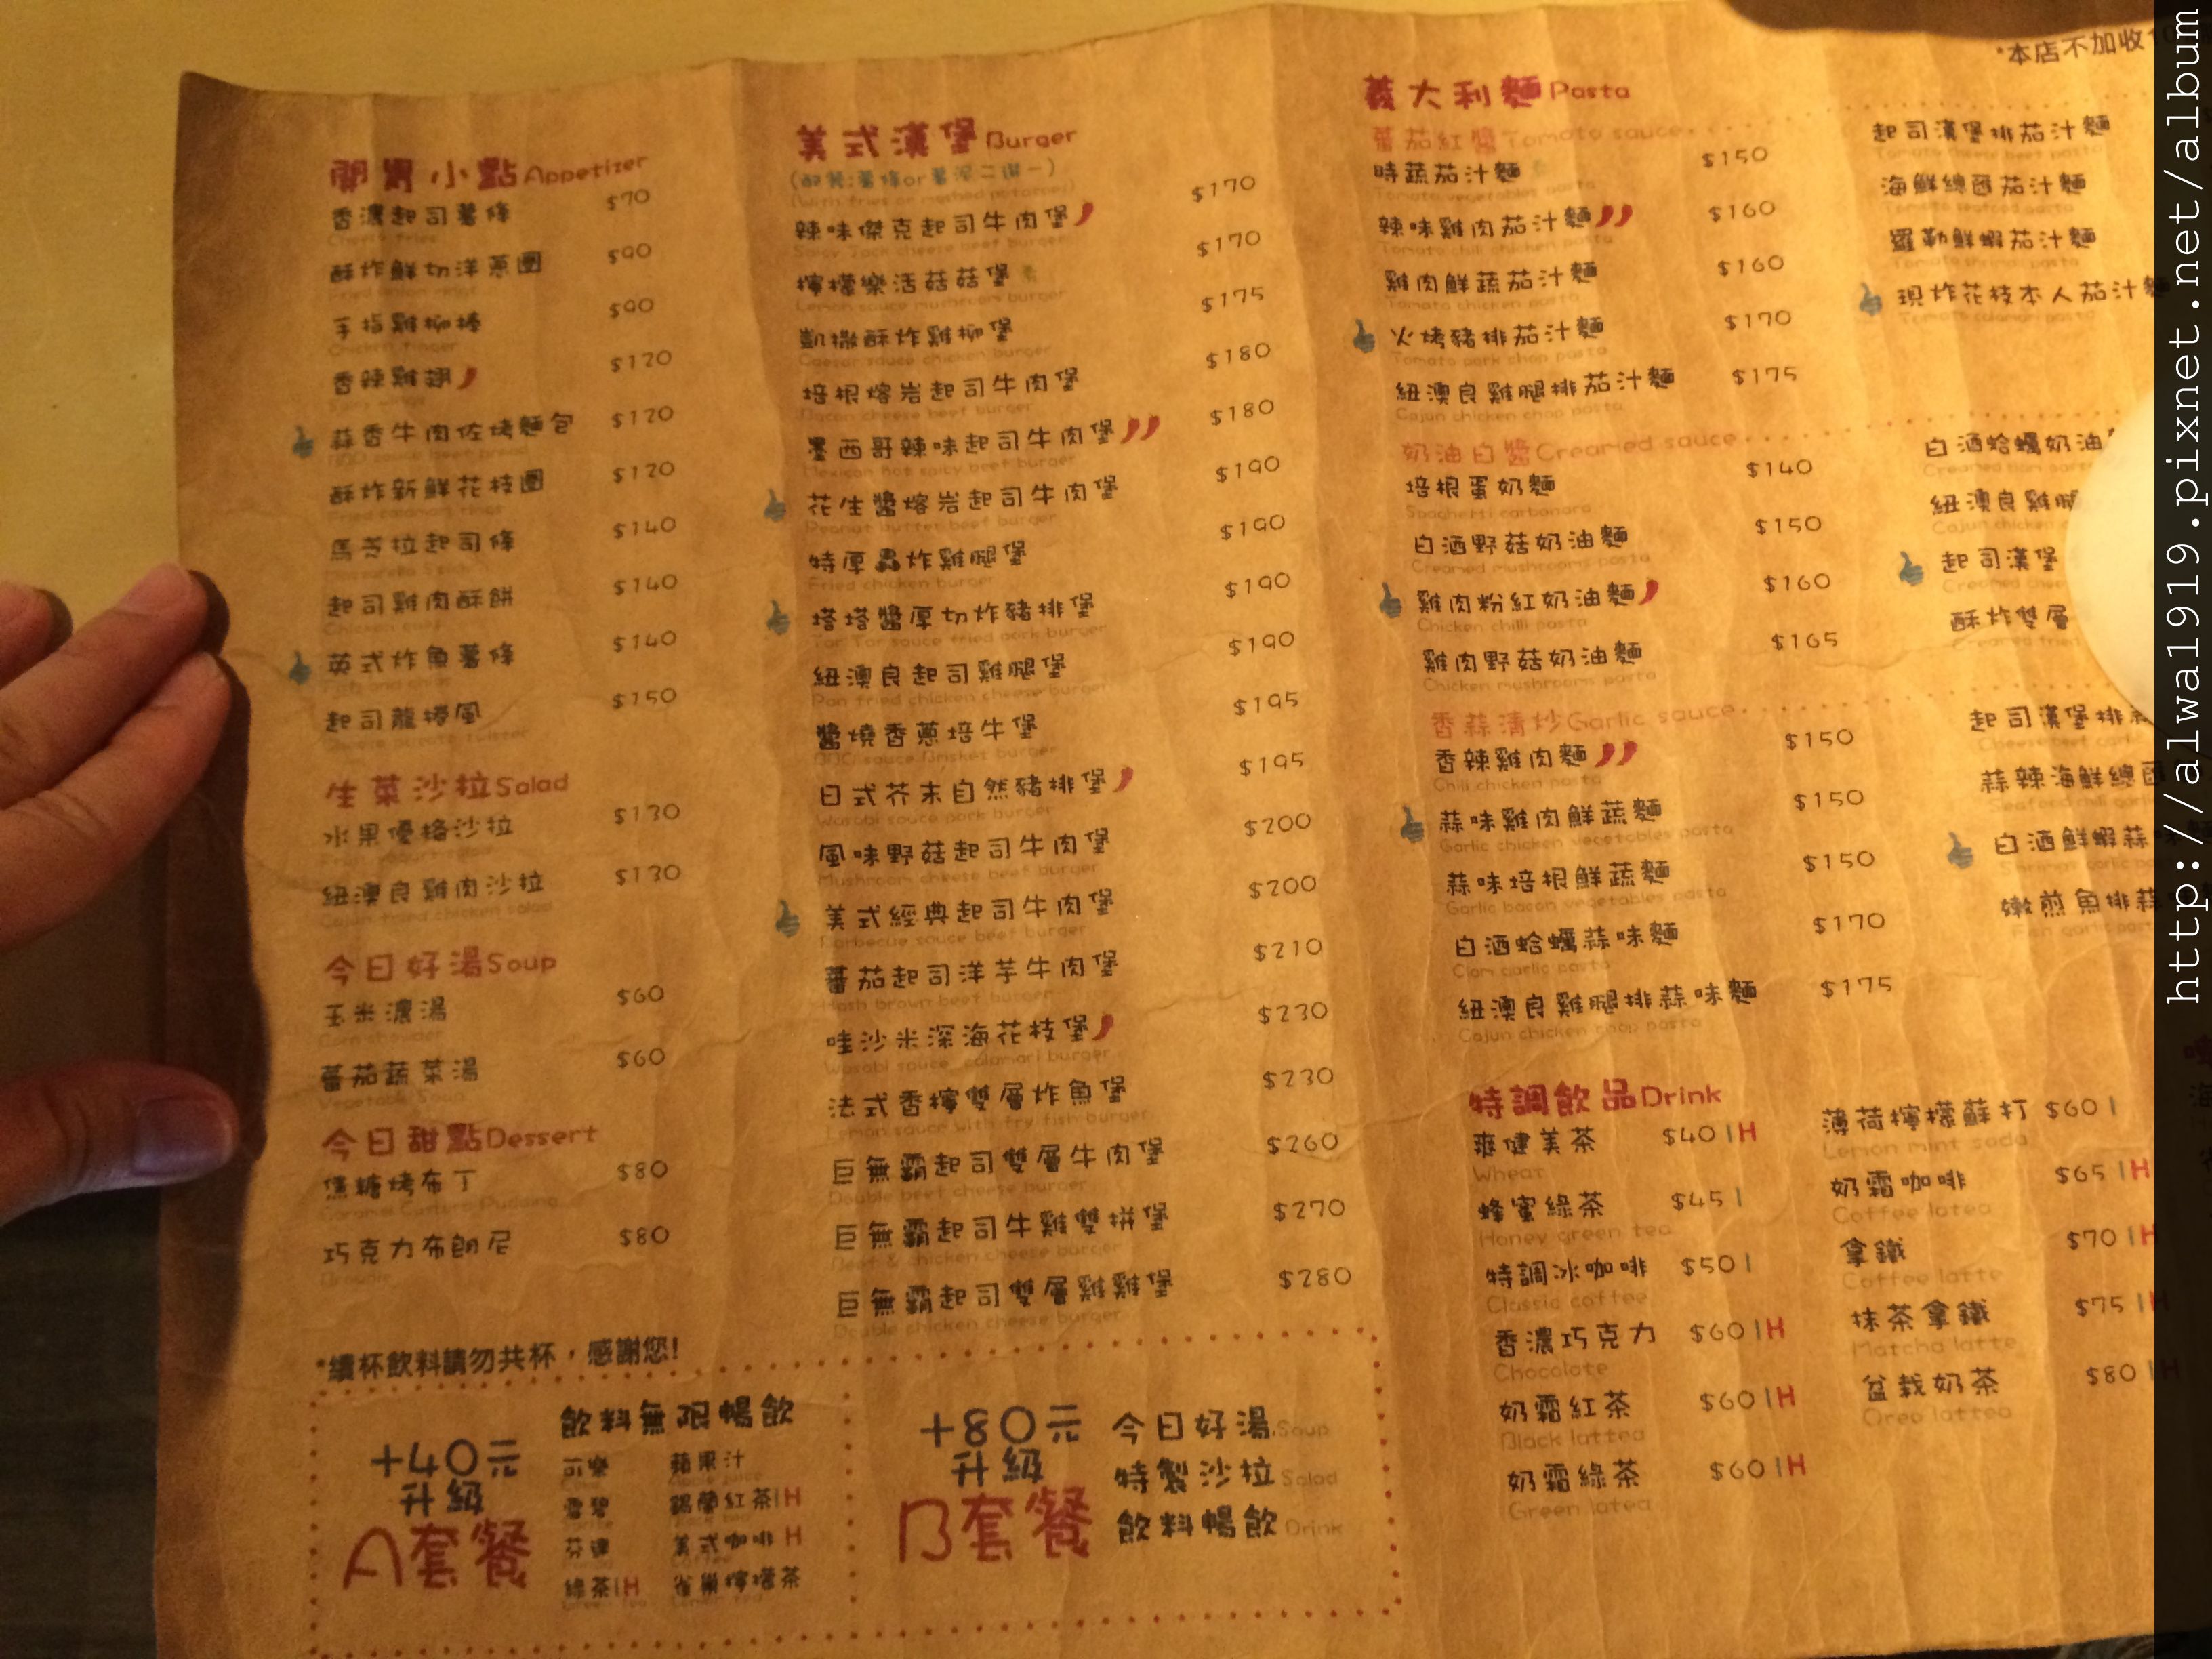 *本店不加收
開胃小點Appetizer
香濃起司薯條 $70
酥炸鮮切洋蔥圈 $90
手指雞柳棒 $90
Chicken finger
香辣雞翅 $120
蒜香牛肉佐烤麵包 $120
酥炸新鮮花枝圈 $120
馬芝拉起司條 $140
起司雞肉酥餅 $140
英式炸魚薯條 $140
起司龍捲風 $150
生菜沙拉Salad
水果優格沙拉 $130
紐澳良雞肉沙拉 $130
今日好湯Soup
玉米濃湯 $60
蕃茄蔬菜湯 $60
Vegetable Soup
今日甜點Dessert
焦糖烤布丁 $80
Caramel Custard Pudding
巧克力布朗尼 $80
*續杯飲料請勿共杯，感謝您!
美式漢堡Burger
(配餐:薯條or薯泥二選一)
(With fries or mashed potatoes)
辣味傑克起司牛肉堡 $170
Spicy Jack cheese beef burger
檸檬樂活菇菇堡 $170
Lemon sauce mushroom burger
凱撒酥炸雞柳堡 $175
Caesar sauce chicken burger
培根熔岩起司牛肉堡 $180
Bacon cheese beef burger
墨西哥辣味起司牛肉堡 $180
Mexican hot spicy beef burger
花生醬熔岩起司牛肉堡 $190
Peanut butter beef burger
特厚轟炸雞腿堡 $190
Fried chicken burger
塔塔醬厚切炸豬排堡 $190
Tar Tar sauce fried pork burger
紐澳良起司雞腿堡 $190
Pan fried chicken cheese burger
醬燒香蔥培牛堡 $195
BBQ sauce Brisket burger
日式芥末自然豬排堡 $195
Wasabi sauce pork burger
風味野菇起司牛肉堡 $200
Mushroom cheese beef burger
美式經典起司牛肉堡 $200
Barbecue sauce beef burger
蕃茄起司洋芋牛肉堡 $210
Hash brown beef burger
哇沙米深海花枝堡 $230
Wasabi sauce calamari burger
法式香檸雙層炸魚堡 $230
Lemon sauce with fry fish burger
巨無霸起司雙層牛肉堡 $260
Double beef cheese burger
巨無霸起司牛雞雙拼堡 $270
Beef & chicken cheese burger
巨無霸起司雙層雞雞堡 $280
Double chicken cheese burger
義大利麵Pasta
蕃茄紅醬Tomato sauce
時蔬茄汁麵 $150
Tomato vegetables pasta
辣味雞肉茄汁麵 $160
Tomato chili chicken pasta
雞肉鮮蔬茄汁麵 $160
Tomato chicken pasta
火烤豬排茄汁麵 $170
Tomato pork chop pasta
紐澳良雞腿排茄汁麵 $175
Cajun chicken chop pasta
起司漢堡排茄汁麵
Tomato cheese beef pasta
海鮮總匯茄汁麵
Tomato seafood pasta
羅勒鮮蝦茄汁麵
Tomato shrimp pasta
現炸花枝本人茄汁麵
Tomato calamari pasta
奶油白醬Creamed sauce
培根蛋奶麵 $140
Spaghetti carbonara
白酒野菇奶油麵 $150
Creamed mushrooms pasta
雞肉粉紅奶油麵 $160
Chicken chilli pasta
雞肉野菇奶油麵 $165
Chicken mushrooms pasta
白酒蛤蠣奶油
紐澳良雞腿
Cajun chicken
起司漢堡
酥炸雙層
香蒜清炒Garlic sauce
香辣雞肉麵 $150
Chili chicken pasta
蒜味雞肉鮮蔬麵 $150
Garlic chicken vegetables pasta
蒜味培根鮮蔬麵 $150
Garlic bacon vegetables pasta
白酒蛤蠣蒜味麵 $170
Clam garlic pasta
紐澳良雞腿排蒜味麵 $175
Cajun chicken chop pasta
起司漢堡排蒜
蒜辣海鮮總匯
白酒鮮蝦蒜味
嫩煎魚排蒜
特調飲品Drink
爽健美茶 $40 I H
Wheat
蜂蜜綠茶 $45 I
Honey green tea
特調冰咖啡 $50 I
Classic coffee
香濃巧克力 $60 I H
Chocolate
奶霜紅茶 $60 I H
Black lattea
奶霜綠茶 $60 I H
Green latea
薄荷檸檬蘇打 $60 I
Lemon mint soda
奶霜咖啡 $65 I H
Coffee latea
拿鐵 $70 I H
Coffee latte
抹茶拿鐵 $75 I H
Matcha latte
盆栽奶茶 $80 I H
Oreo lattea
+40元
升級
A套餐
飲料無限暢飲
可樂 蘋果汁
雪碧 錫蘭紅茶 I H
芬達 美式咖啡 H
綠茶 I H 雀巢檸檬茶
+80元
升級
B套餐
今日好湯 Soup
特製沙拉 Salad
飲料暢飲 Drink
http://alwa1919.pixnet.net/album